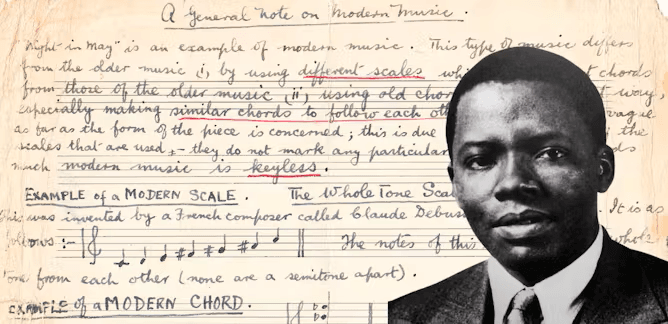 A General Note on Modern Music.
"Night in May" is an example of modern music. This type of music differs
from the older music (i), by using different scales whi t chords
from those of the older music (ii), using old chor t way,
especially making similar chords to follow each ot vague
as far as the form of the piece is concerned; this is due the
scales that are used – they do not mark any particular ds
much modern music is keyless.
EXAMPLE of a MODERN SCALE. The Whole Tone Sca
This was invented by a French composer called Claude Debus . It is as
follows :- The notes of this whole
tone from each other (none are a semitone apart).
EXAMPLE of a MODERN CHORD.